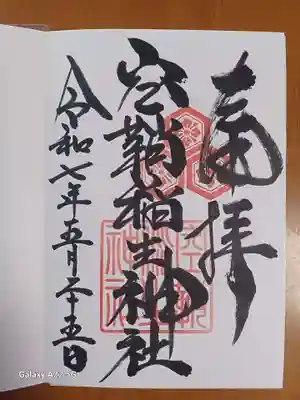 奉拝
空鞘稲生神社
令和七年五月二十五日
Galaxy